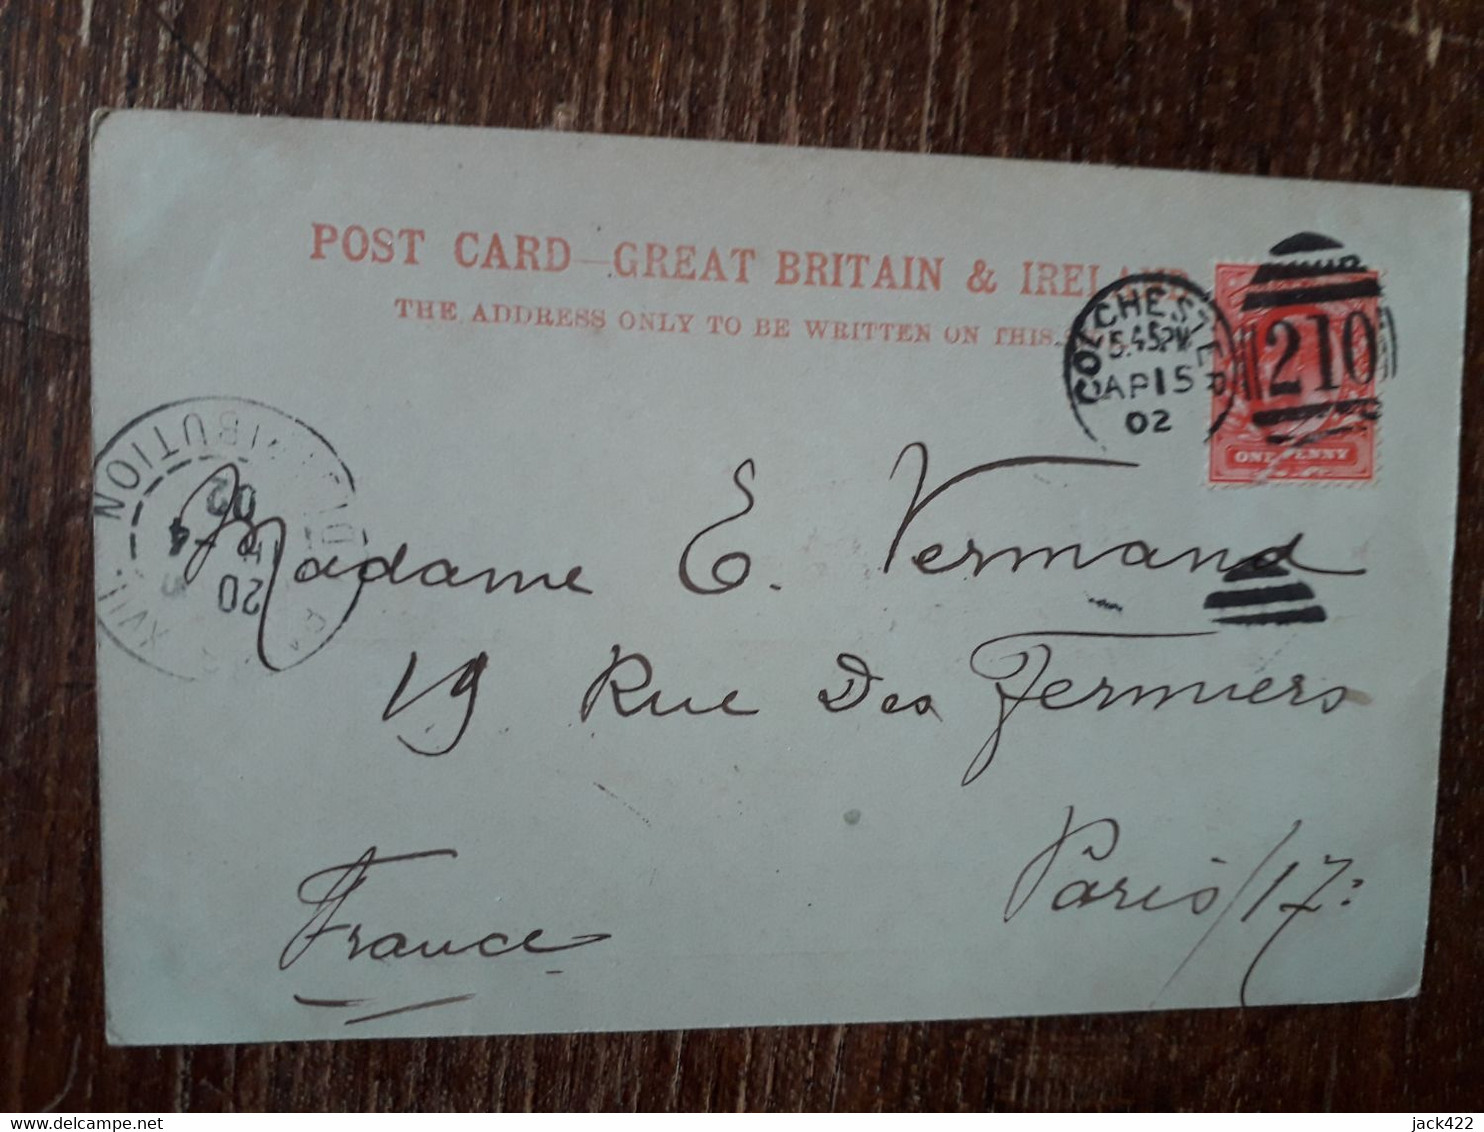 POST CARD—GREAT BRITAIN & IRELAND
THE ADDRESS ONLY TO BE WRITTEN ON THIS
COLCHESTER
5.45PM
AP 15
02
210
ONE PENNY
DISTRIBUTION
20
4
02
XVII
Madame E. Vermand
19 Rue Des Fermiers
Paris/17:
France
delcampe.net
jack422